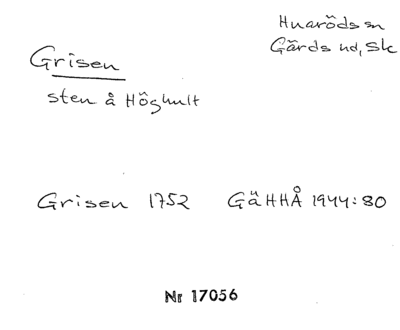 Huaröds sn
Gärds hd, Sk
Grisen
sten å Höghult
Grisen 1752 GäHHÅ 1944:80
Nr 17056